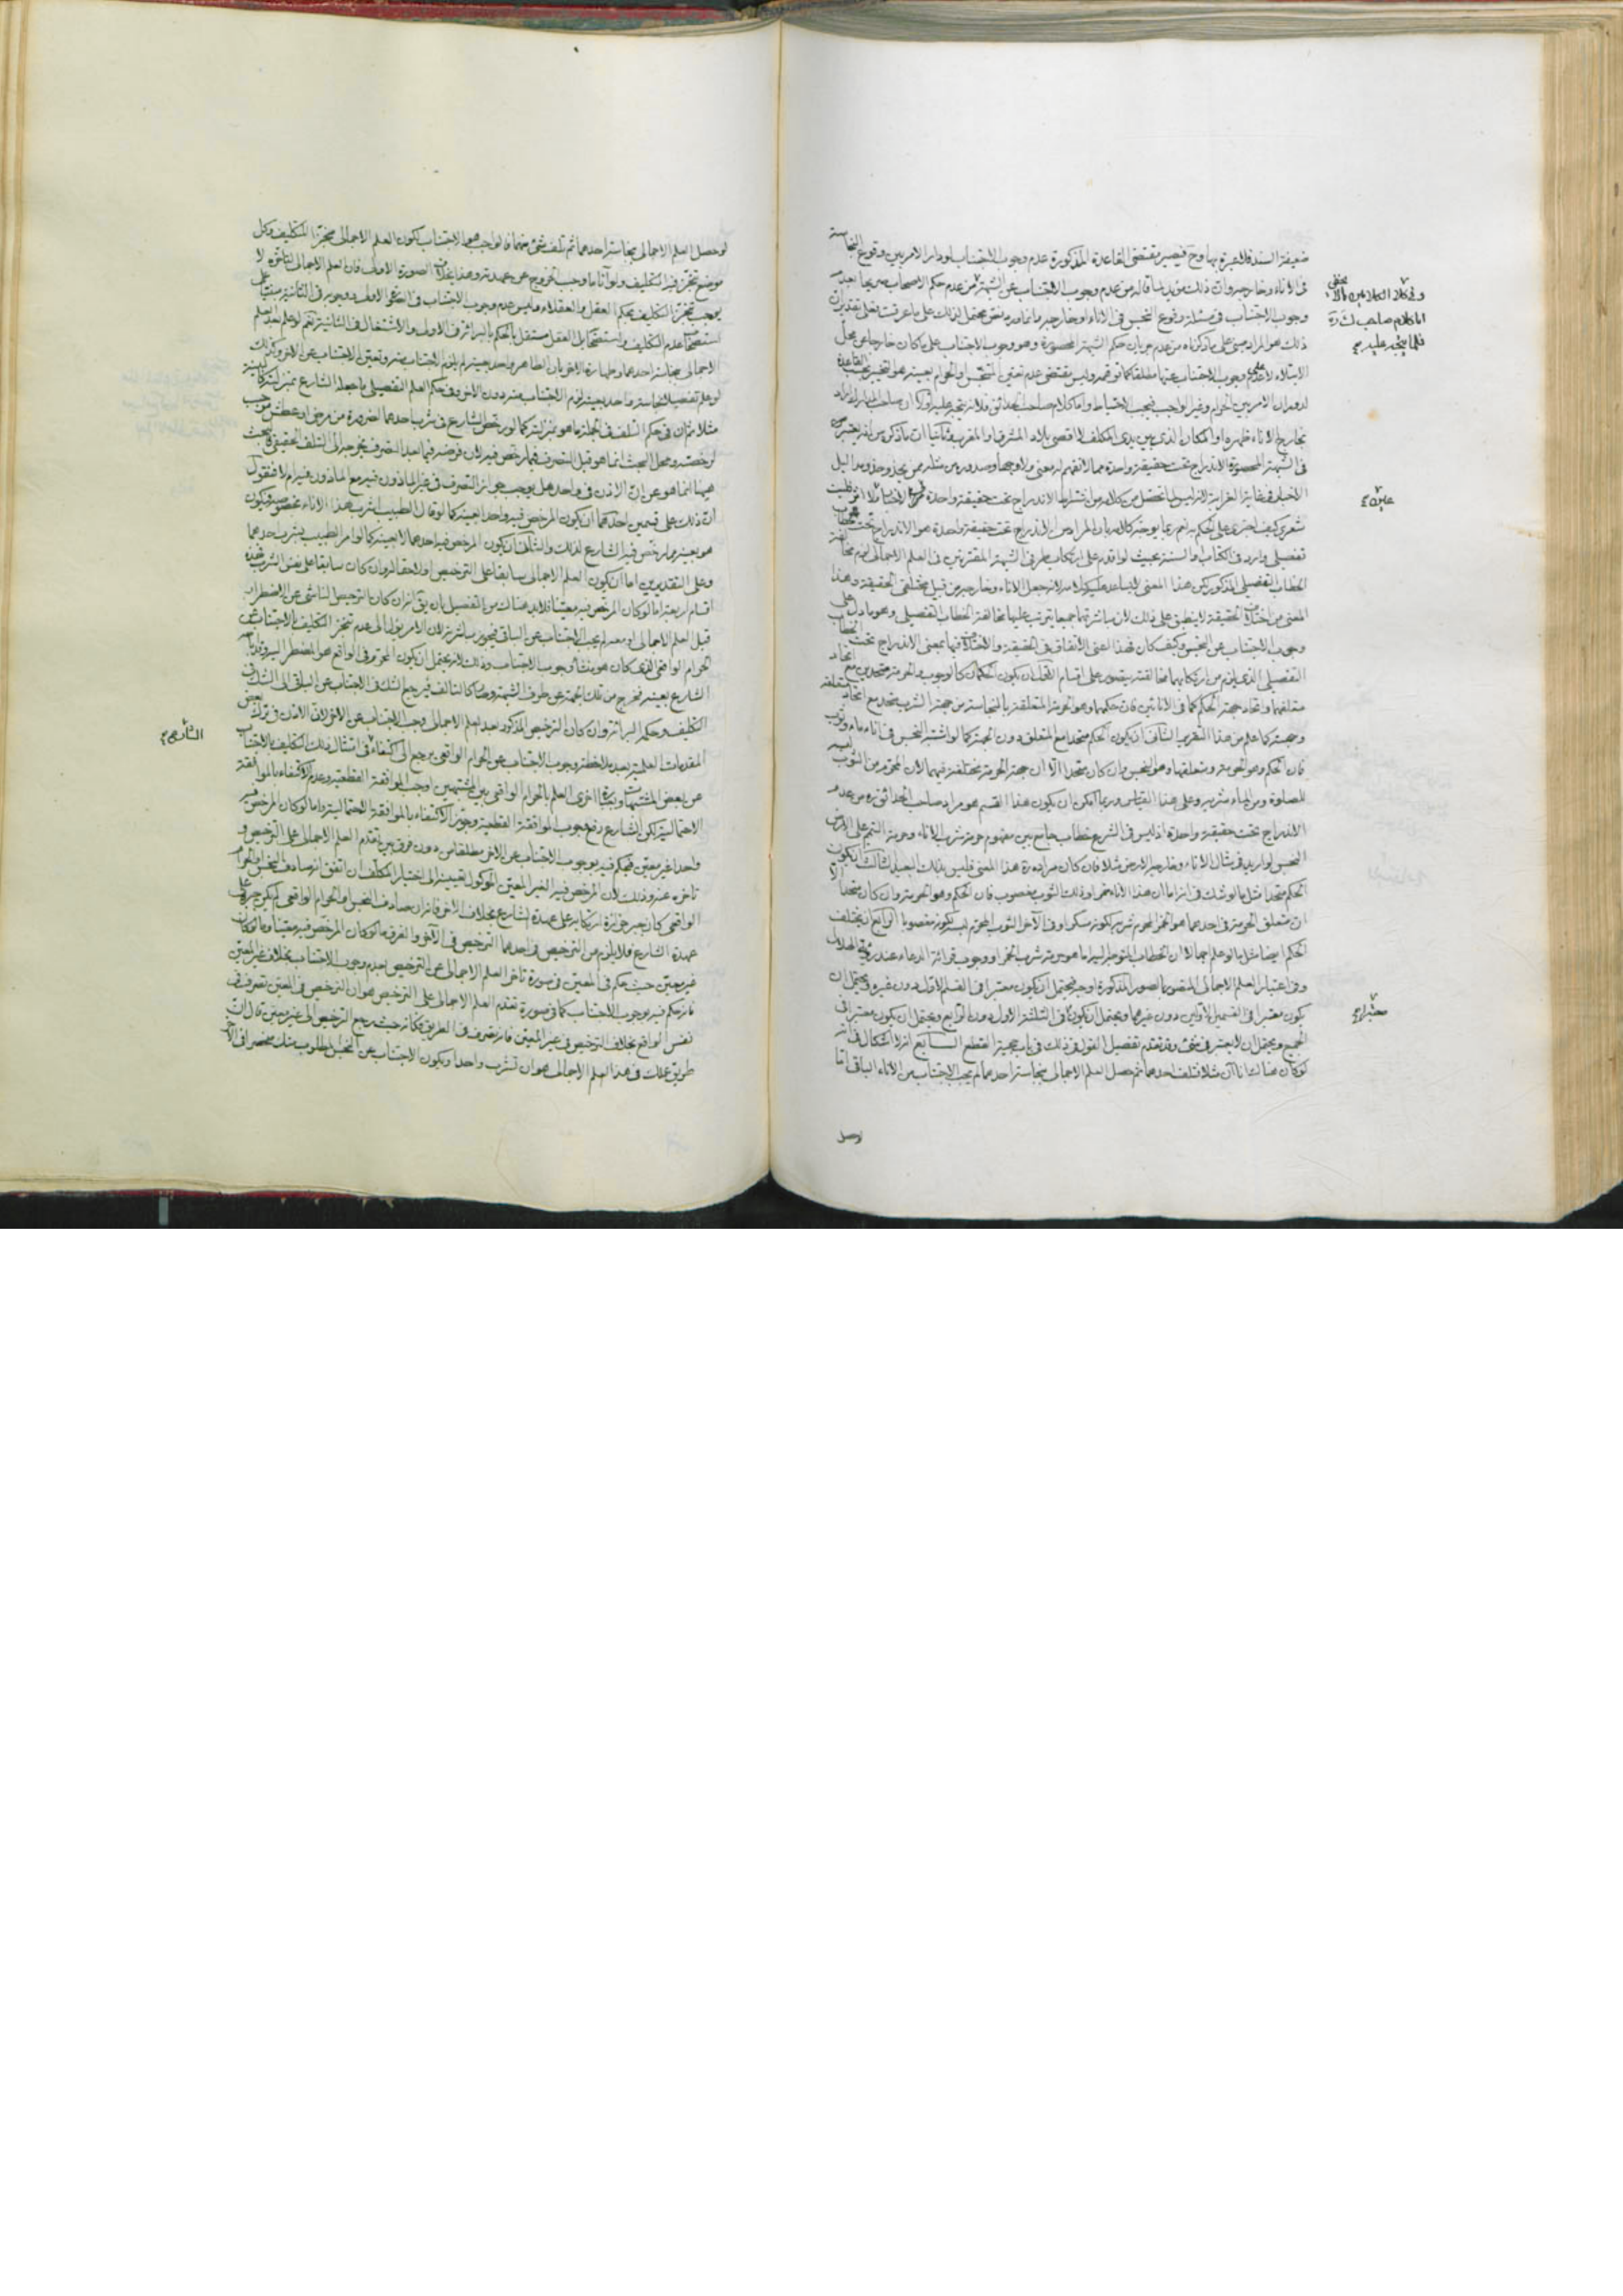 ضعيفة السند فلا عبرة بها وح فيصير مقتضى القاعدة المذكورة عدم وجوب الاجتناب لو دار الامر بين وقوع النجاسة
فى الاناء وخارجه وان ذلك مؤيد لما قاله من عدم وجوب الاجتناب عن الشبهة من عدم حكم الاصحاب
وجوب الاجتناب فى مسئلة وقوع النجس فى الاناء او خارجه
ذلك هو المراد مبنى على ما ذكرناه من عدم جريان حكم الشبهة المحصورة وهو وجوب الاجتناب على ما كان خارجا عن محل
الابتلاء لا عدم وجوب الاجتناب عنها مطلقا كما توهمه وليس مقتضى عدم تعين النجس والحرام بعينه هو التخيير بحسب القاعدة
لدوران الامر بين الحرام وغير الواجب فيجب الاحتياط واما كلام صاحب الحدائق فلانه يتجه عليه اولا ان صاحب المدارك اراد
بخارج الاناء ظهره او المكان الذى بين يدى المكلف لا اقصى بلاد المشرق او المغرب وثانيا ان ما ذكره من انه يعتبر
فى الشبهة المحصورة الاندراج تحت حقيقة واحدة مما لا نفهم له معنى ولا وجها وصدوره من مثله ممن يحذو حذو مداليل
الاخبار فى غاية الغرابة
شعرى كيف اجترى على الحكم به نعم ربما يوجه كلامه بان المراد من الاندراج تحت حقيقة واحدة هو الاندراج تحت خطاب
تفصيلى وارد فى الكتاب او السنة بحيث لو اقدم على ارتكاب طرفى الشبهة المقترنتين فى العلم الاجمالى لزم مخالفة
الخطاب التفصيلى المذكور لكن هذا المعنى لا يساعد عليه كلامه لانه جعل الاناء وخارجه من قبيل مختلفى الحقيقة وهذا
المعنى من اختلاف الحقيقة لا ينطبق على ذلك لان مباشرتهما جميعا يترتب عليها مخالفة الخطاب التفصيلى وهو ما دل على
وجوب الاجتناب عن النجس وكيف كان فهذا اعنى الاتفاق فى الحقيقة والاختلاف فيها بمعنى الاندراج تحت الخطاب
التفصيلى الذى يلزم من ارتكابهما مخالفته يتصور على اقسام الاول ان يكون الحكمان كالوجوب والحرمة متحدين مع اتحاد
متعلقهما واتحاد جهة الحكم كما فى الانائين فان حكمهما وهو الحرمة المتعلقة بالنجاسة من جهة الشرب متحد مع اتحاد متعلقه
وجهته كما علم من هذا التقرير الثانى ان يكون الحكم متحدا مع المتعلق دون الجهة كما لو اشتبه النجس فى اناء ماء وثوب
فان الحكم وهو الحرمة ومتعلقها وهو النجس وان كان متحدا الا ان جهة الحرمة مختلفة فيهما لان المحرم من الثوب لبسه
للصلوة ومن الماء شربه وعلى هذا القياس وربما امكن ان يكون هذا القسم هو مراد صاحب الحدائق ره من عدم
الاندراج تحت حقيقة واحدة اذ ليس فى الشرع خطاب جامع بين مفهوم حرمة شرب الاناء وحرمة التيمم على الارض
النجس لو اريد فى مثال الاناء وخارجه الارض مثلا فان كان مراده ره هذا المعنى فليس بذلك البعيد الثالث ان يكون
الحكم متحدا مثل ما لو شك فى انه اما ان هذا الاناء خمر او ذلك الثوب مغصوب فان الحكم وهو الحرمة وان كان متحدا الا
ان متعلق الحرمة فى احدهما هو الخمر المحرم شربه لكونه مسكرا وفى الآخر الثوب المحرم لبسه لكونه مغصوبا الرابع ان يختلف
الحكم ايضا مثل ما لو علم اجمالا ان الخطاب المتوجه اليه اما هو حرمة شرب الخمر او وجوب قرائة الدعاء عند رؤية الهلال
وفى اعتبار العلم الاجمالى المتصور بالصور المذكورة اوجه فيحتمل ان يكون معتبرا فى القسم الاول دون غيره ويحتمل ان
يكون معتبرا فى القسمين الاولين دون غيرهما ويحتمل ان يكون فى الثلثة الاول دون الرابع ويحتمل ان يكون معتبرا فى
الجميع ويحتمل ان لا يعتبر فى شئ وقد تقدم تفصيل القول فى ذلك فى باب حجية القطع السابع انه لا اشكال فى انه
لو كان هناك اناآن مثلا فتلف احدهما ثم حصل العلم الاجمالى بنجاسة احدهما لم يجب الاجتناب من الاناء الباقى اما
اما كلام صاحب لك ره
فلما يتجه عليه
معتبرا
لو حصل العلم الاجمالى بنجاسة احدهما ثم تلف شئ منهما فالواجب هو الاجتناب لكون العلم الاجمالى منجزا للتكليف وكل
موضع تنجز فيه التكليف ولو آنا ما وجب الخروج عن عهدته وهذا بخلاف الصورة الاولى فان العلم الاجمالى لتاخره لا
يوجب تنجز التكليف بحكم العقل والعقلاء
استصحاب عدم التكليف واستصحابه بل العقل مستقل بالحكم بالبرائة فى الاولى والاشتغال فى الثانية نعم لو علم بعد العلم
الاجمالى بنجاسة احدهما وطهارة الآخر بان الطاهر واحد بعينه لم يلزم الاجتناب عنه وتعين الاجتناب عن الآخر وكذلك
لو علم تفصيلا بنجاسة واحد بعينه لزم الاجتناب عنه دون الآخر وفى حكم العلم التفصيلى ما جعله الشارع بمنزلته كالبينة
مثلا ثم ان فى حكم التلف فى الجملة ما هو بمنزلته كما لو رخص الشارع فى شرب احدهما لضرورة من مرض او عطش موجب
لرخصته ومحل البحث انما هو قبل التصرف فيما رخص فيه لان فرضه فيما بعد التصرف يخرجه الى التلف الحقيقى فالبحث
هيهنا انما هو عن ان الاذن فى واحد هل يوجب جواز التصرف فى غير الماذون فيه مع الماذون فيه ام لا فنقول
ان ذلك على قسمين احدهما ان يكون المرخص فيه واحدا بعينه كما لو قال الطبيب اشرب هذا الاناء بخصوصه فيكون
هو بعينه مما رخص فيه الشارع لذلك والثانى ان يكون المرخص فيه احدهما لا بعينه كما لو امر الطبيب بشرب احدهما
وعلى التقديرين اما ان يكون العلم الاجمالى سابقا على الترخيص او لاحقا له
اقسام اربعة اما لو كان المرخص فيه معينا فلابد هناك من التفصيل بان يق انه ان كان الترخيص الناشى عن الاضطرار
قبل العلم الاجمالى او معه لم يجب الاجتناب عن الباقى فيجوز مباشرته لان الامر يؤل الى عدم تنجز التكليف بالاجتناب عن
الحرام الواقعى الذى كان هو منشأ وجوب الاجتناب وذلك لانه يحتمل ان يكون المحرم فى الواقع هو المضطر اليه وقد اباحه
الشارع بعينه فخرج من تلك الجهة عن طرف الشبهة وصار كالتالف فيرجع الشك فى الاجتناب عن الباقى الى الشك فى
التكليف وحكمه البرائة وان كان الترخيص المذكور بعد العلم الاجمالى وجب الاجتناب عن الآخر لان الاذن فى ترك بعض
المقدمات العلمية بعد ملاحظة وجوب الاجتناب عن الحرام الواقعى يرجع الى اكتفاء فى امتثال ذلك التكليف بالاجتناب
عن بعض المشتبهات وبعبارة اخرى العلم بالحرام الواقعى بين المشتبهين اوجب الموافقة القطعية وعدم الاكتفاء بالموافقة
الاحتمالية لكن الشارع رفع وجوب الموافقة القطعية وجوز الاكتفاء بالموافقة الاحتمالية واما لو كان المرخص فيه
واحدا غير معين فيحكم فيه بوجوب الاجتناب عن الآخر مطلقا من دون فرق بين تقدم العلم الاجمالى على الترخيص و
تاخره عنه وذلك لان المرخص فيه الغير المعين الموكول تعيينه الى اختيار المكلف ان اتفق انه صادف النجس والحرام
الواقعى كان جبر جوازه ارتكابه على عهدة الشارع بخلاف الآخر فانه ان صادف النجس او الحرام الواقعى لم يكن جبره على
عهدة الشارع فلا يلزم من الترخيص فى احدهما الترخيص فى الآخر والفرق ما لو كان المرخص فيه معينا وما لو كان
غير معين حيث حكم فى المعين فى صورة تاخر العلم الاجمالى عن الترخيص بعدم وجوب الاجتناب بخلاف غير المعين
فانه حكم فيه بوجوب الاجتناب كما فى صورة تقدم العلم الاجمالى على الترخيص هو ان الترخيص فى المعين تصرف فى
نفس الواقع بخلاف الترخيص فى غير المعين فانه تصرف فى الطريق فكانه حيث رجع الترخيص الى غير معين قال ان
طريق عملك فى هذا العلم الاجمالى هو ان تشرب واحدا ويكون الاجتناب عن النجس المطلوب منك منحصرا فى الآخر
الشارع